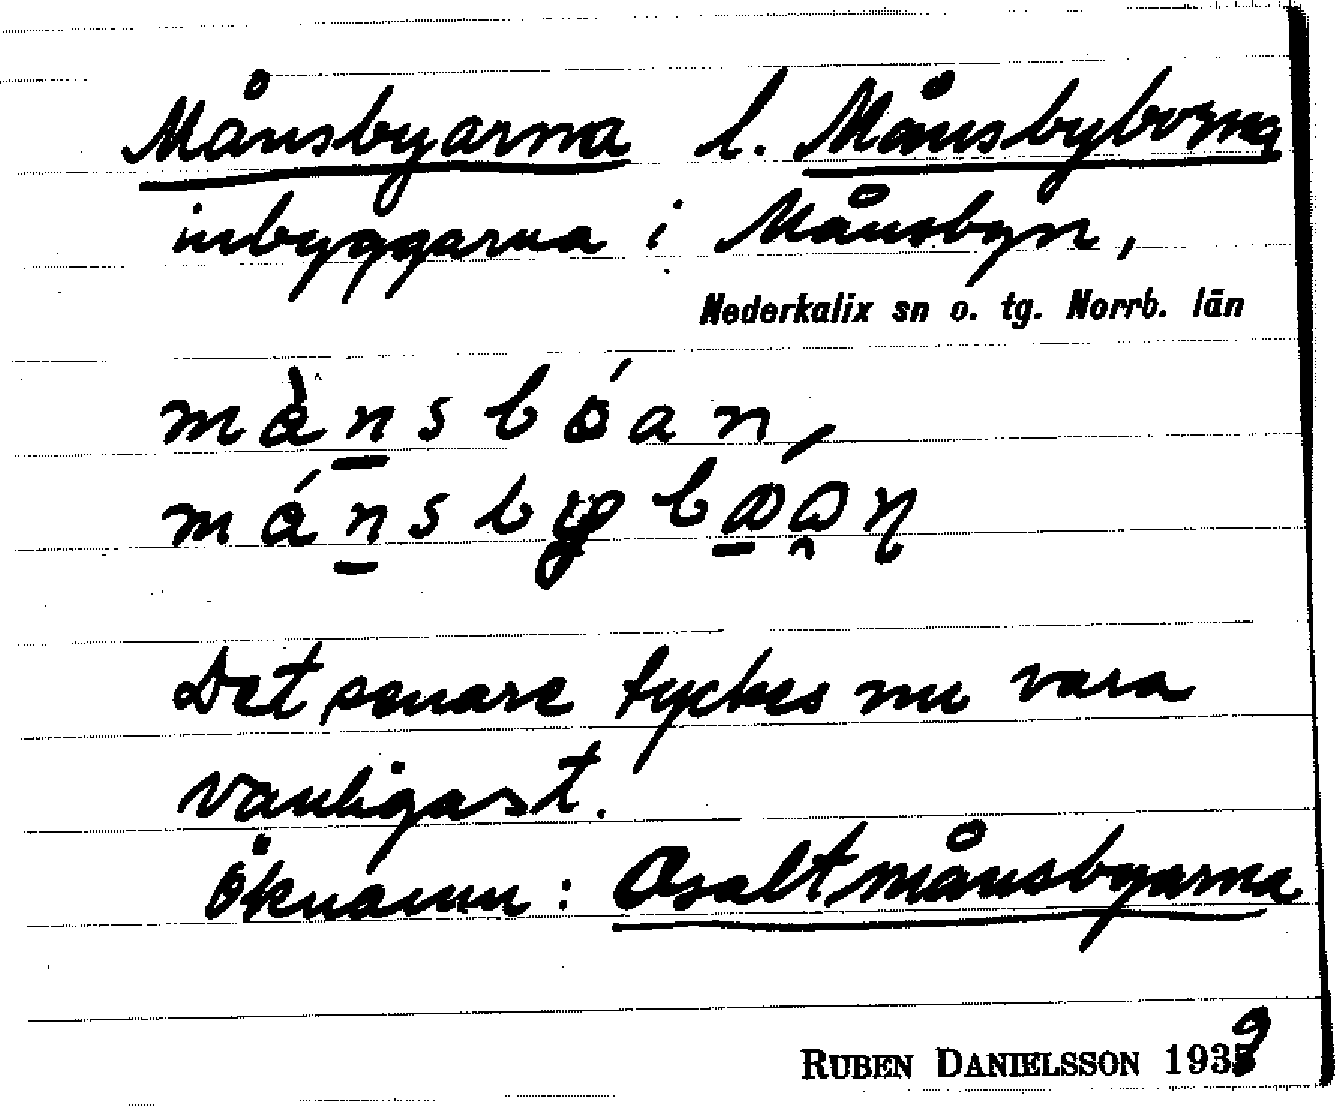 Månsbyarna l. Månsbyborna
inbyggarna i Månsbyn,
Nederkalix sn o. tg. Norrb. län
Det senare tyckes nu vara
vanligast.
Öknamn: Osaltmånsbyarna
RUBEN DANIELSSON 1939